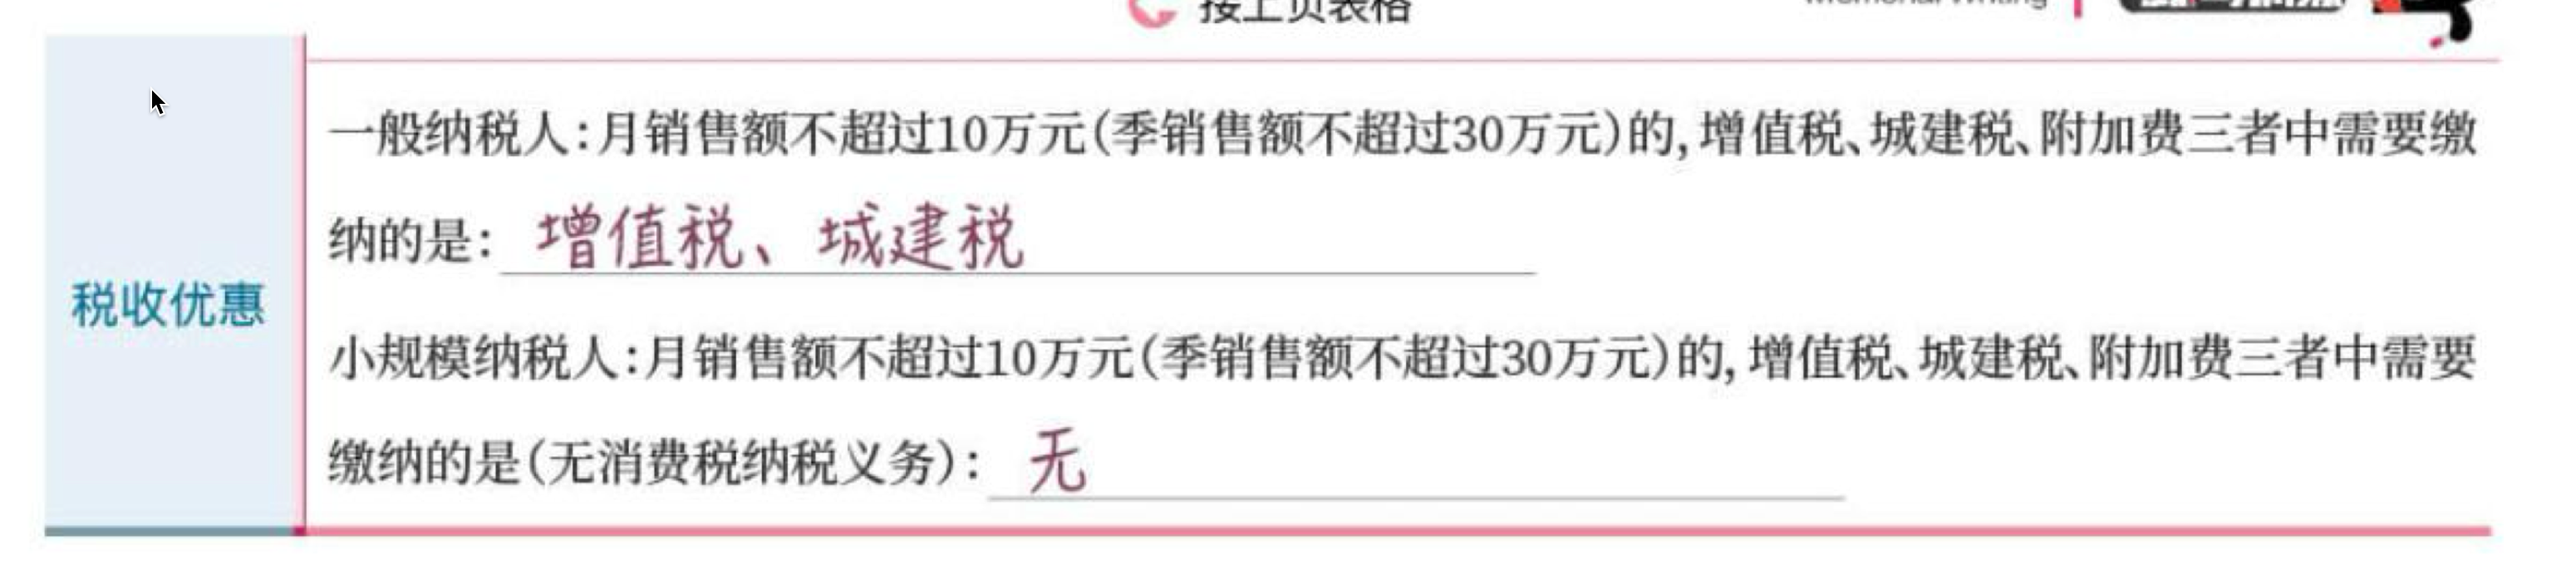 接上页表格
Memorial Writing
一般纳税人:月销售额不超过10万元(季销售额不超过30万元)的,增值税、城建税、附加费三者中需要缴
纳的是: 增值税、城建税
税收优惠
小规模纳税人:月销售额不超过10万元(季销售额不超过30万元)的,增值税、城建税、附加费三者中需要
缴纳的是(无消费税纳税义务): 无